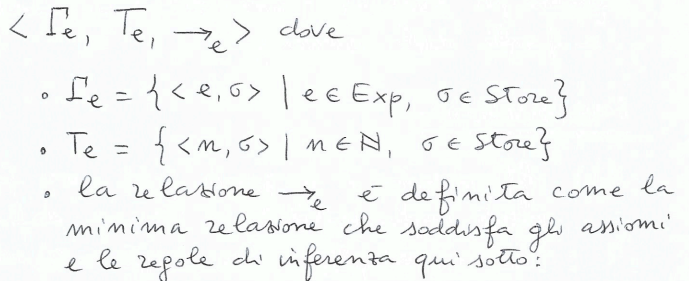 < Γe, Te, →e > dove
• Γe = { < e, σ > | e ∈ Exp, σ ∈ Store}
• Te = { < n, σ > | n ∈ ℕ, σ ∈ Store}
• la relazione →e è definita come la
minima relazione che soddisfa gli assiomi
e le regole di inferenza qui sotto: